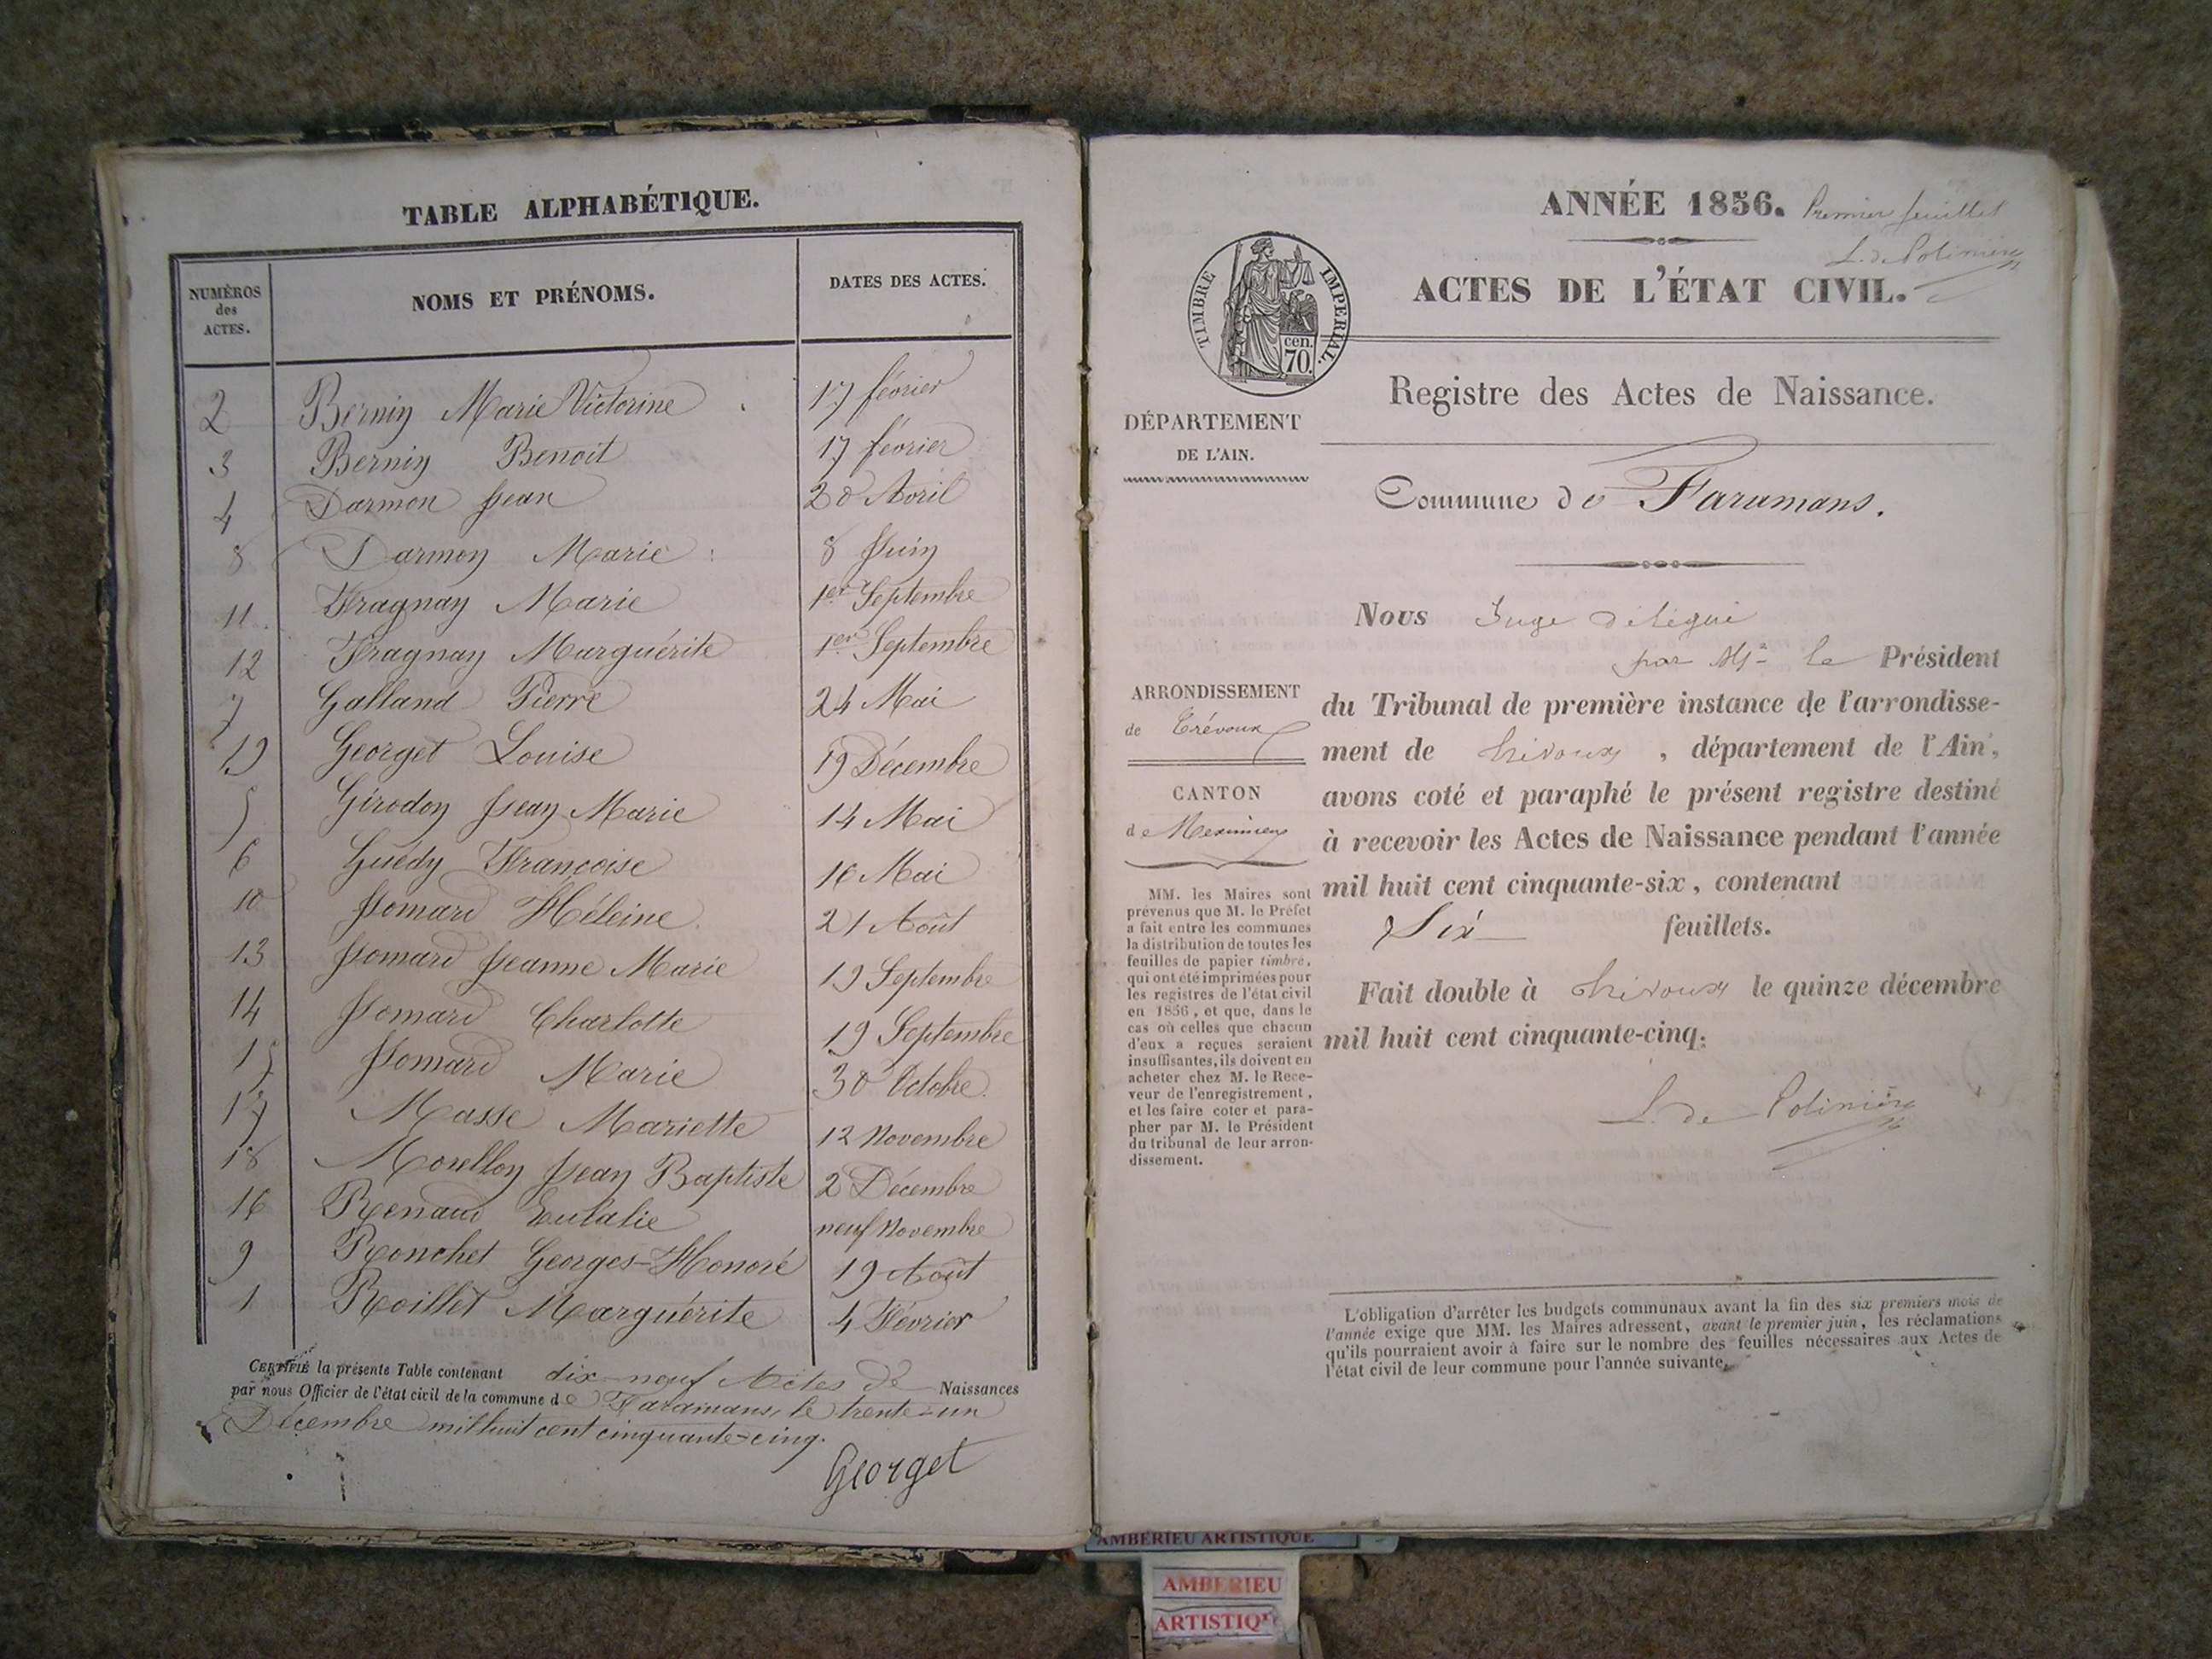 TABLE ALPHABÉTIQUE.
NUMÉROS des ACTES. NOMS ET PRÉNOMS. DATES DES ACTES.
2 Bernin Marie Victorine 17 février
3 Bernin Benoit 17 février
4 Darmon Jean 20 Avril
8 Darmon Marie 8 Juin
11. Fragnay Marie 1er Septembre
12 Fragnay Marguérite 1er Septembre
7 Galland Pierre 24 Mai
19 Georget Louise 19 Décembre
5 Girodon Jean Marie 14 Mai
6 Guédy Françoise 16 Mai
10 Jomard Héleine 21 Août
13 Jomard Jeanne Marie 19 Septembre
14 Jomard Charlotte 19 Septembre
15 Jomard Marie 30 Octobre
17 Masse Mariette 12 Novembre
18 Morellon Jean Baptiste 2 Décembre
16 Renaud Eulalie neuf Novembre
9 Ronchet Georges-Honoré 19 Août
1 Roillet Marguérite 4 Février
CERTIFIÉ la présente Table contenant dix-neuf Actes de Naissances
par nous Officier de l'état civil de la commune de Faramans, le trente-un
Décembre mil huit cent cinquante-cinq.
Georget
ANNÉE 1856. Premier feuillet
L. de Polinière
ACTES DE L'ÉTAT CIVIL.
TIMBRE IMPERIAL.
cen. 70.
Registre des Actes de Naissance.
DÉPARTEMENT
DE L'AIN.
Commune de Faramans.
Nous Juge délégué
par Mr le Président
du Tribunal de première instance de l'arrondisse-
ment de Trévoux, département de l'Ain,
avons coté et paraphé le présent registre destiné
à recevoir les Actes de Naissance pendant l'année
mil huit cent cinquante-six, contenant
Six feuillets.
Fait double à Trévoux le quinze décembre
mil huit cent cinquante-cinq.
L. de Polinière
ARRONDISSEMENT
de Trévoux
CANTON
de Meximieux
MM. les Maires sont
prévenus que M. le Préfet
a fait entre les communes
la distribution de toutes les
feuilles de papier timbré,
qui ont été imprimées pour
les registres de l'état civil
en 1856, et que, dans le
cas où celles que chacun
d'eux a reçues seraient
insuffisantes, ils doivent en
acheter chez M. le Rece-
veur de l'enregistrement,
et les faire coter et para-
pher par M. le Président
du tribunal de leur arron-
dissement.
L'obligation d'arrêter les budgets communaux avant la fin des six premiers mois de
l'année exige que MM. les Maires adressent, avant le premier juin, les réclamations
qu'ils pourraient avoir à faire sur le nombre des feuilles nécessaires aux Actes de
l'état civil de leur commune pour l'année suivante.
AMBERIEU ARTISTIQUE
AMBERIEU
ARTISTIQU